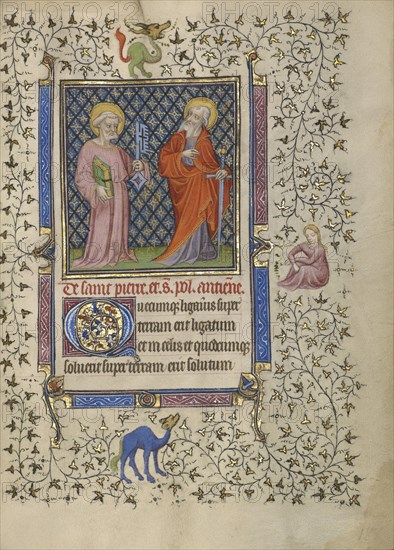 De saint pierre. et. s. pol. antiene.
Quecumq; ligaveris super
terram erit ligatum
et in celis et quodcumq;
solverit super terram erit solutum